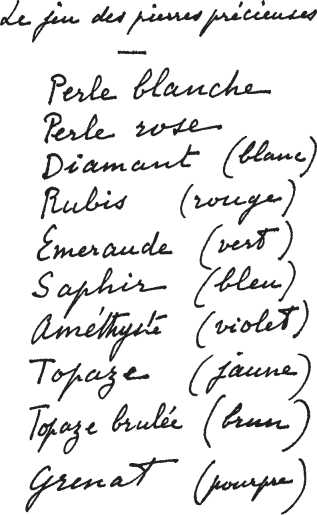 Le jeu des pierres précieuses
Perle blanche
Perle rose
Diamant (blanc)
Rubis (rouge)
Emeraude (vert)
Saphir (bleu)
Améthyste (violet)
Topaze (jaune)
Topaze brulée (brun)
Grenat (pourpre)